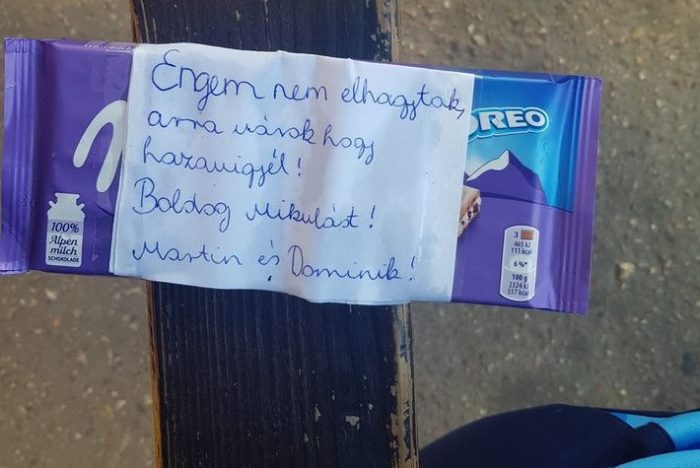 Engem nem elhagytak,
arra várok hogy
hazavigyél!
Boldog Mikulást!
Martin és Dominik!
OREO
100%
Alpen
milch
SCHOKOLADE
3
465 kJ
111 kcal
6%*
100 g
2324 kJ
557 kcal